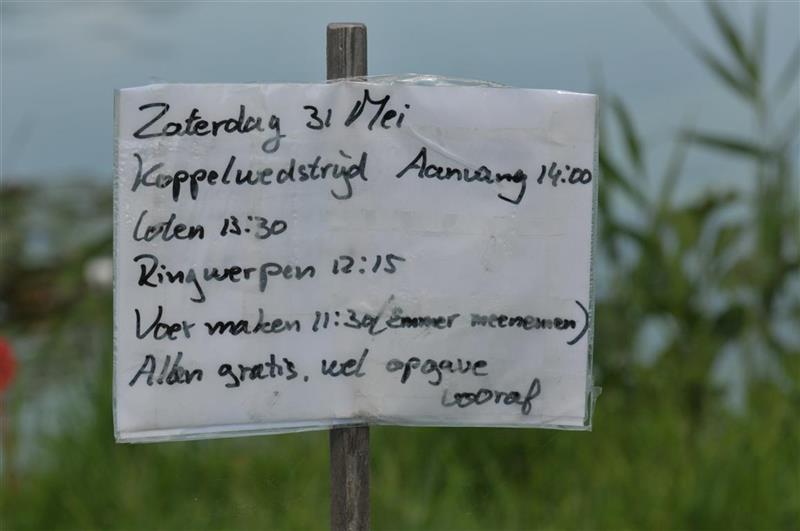 Zaterdag 31 Mei
Koppelwedstrijd Aanvang 14:00
Loten 13:30
Ringwerpen 12:15
Voer maken 11:30 (Emmer meenemen)
Allen gratis, wel opgave
vooraf